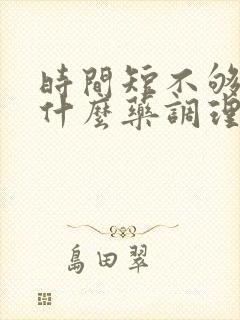 時間短不够
什麼藥調理
島田翠